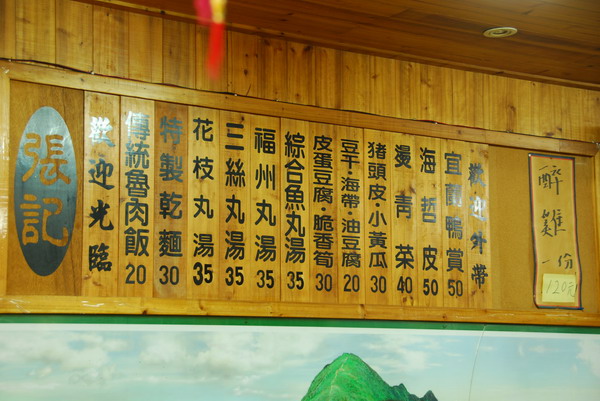 張記
歡迎光臨
傳統魯肉飯 20
特製乾麵 30
花枝丸湯 35
三絲丸湯 35
福州丸湯 35
綜合魚丸湯 35
皮蛋豆腐·脆香筍 30
豆干·海帶·油豆腐 20
豬頭皮·小黃瓜 30
燙青菜 40
海哲皮 50
宜蘭鴨賞 50
歡迎外帶
醉雞一份
120元